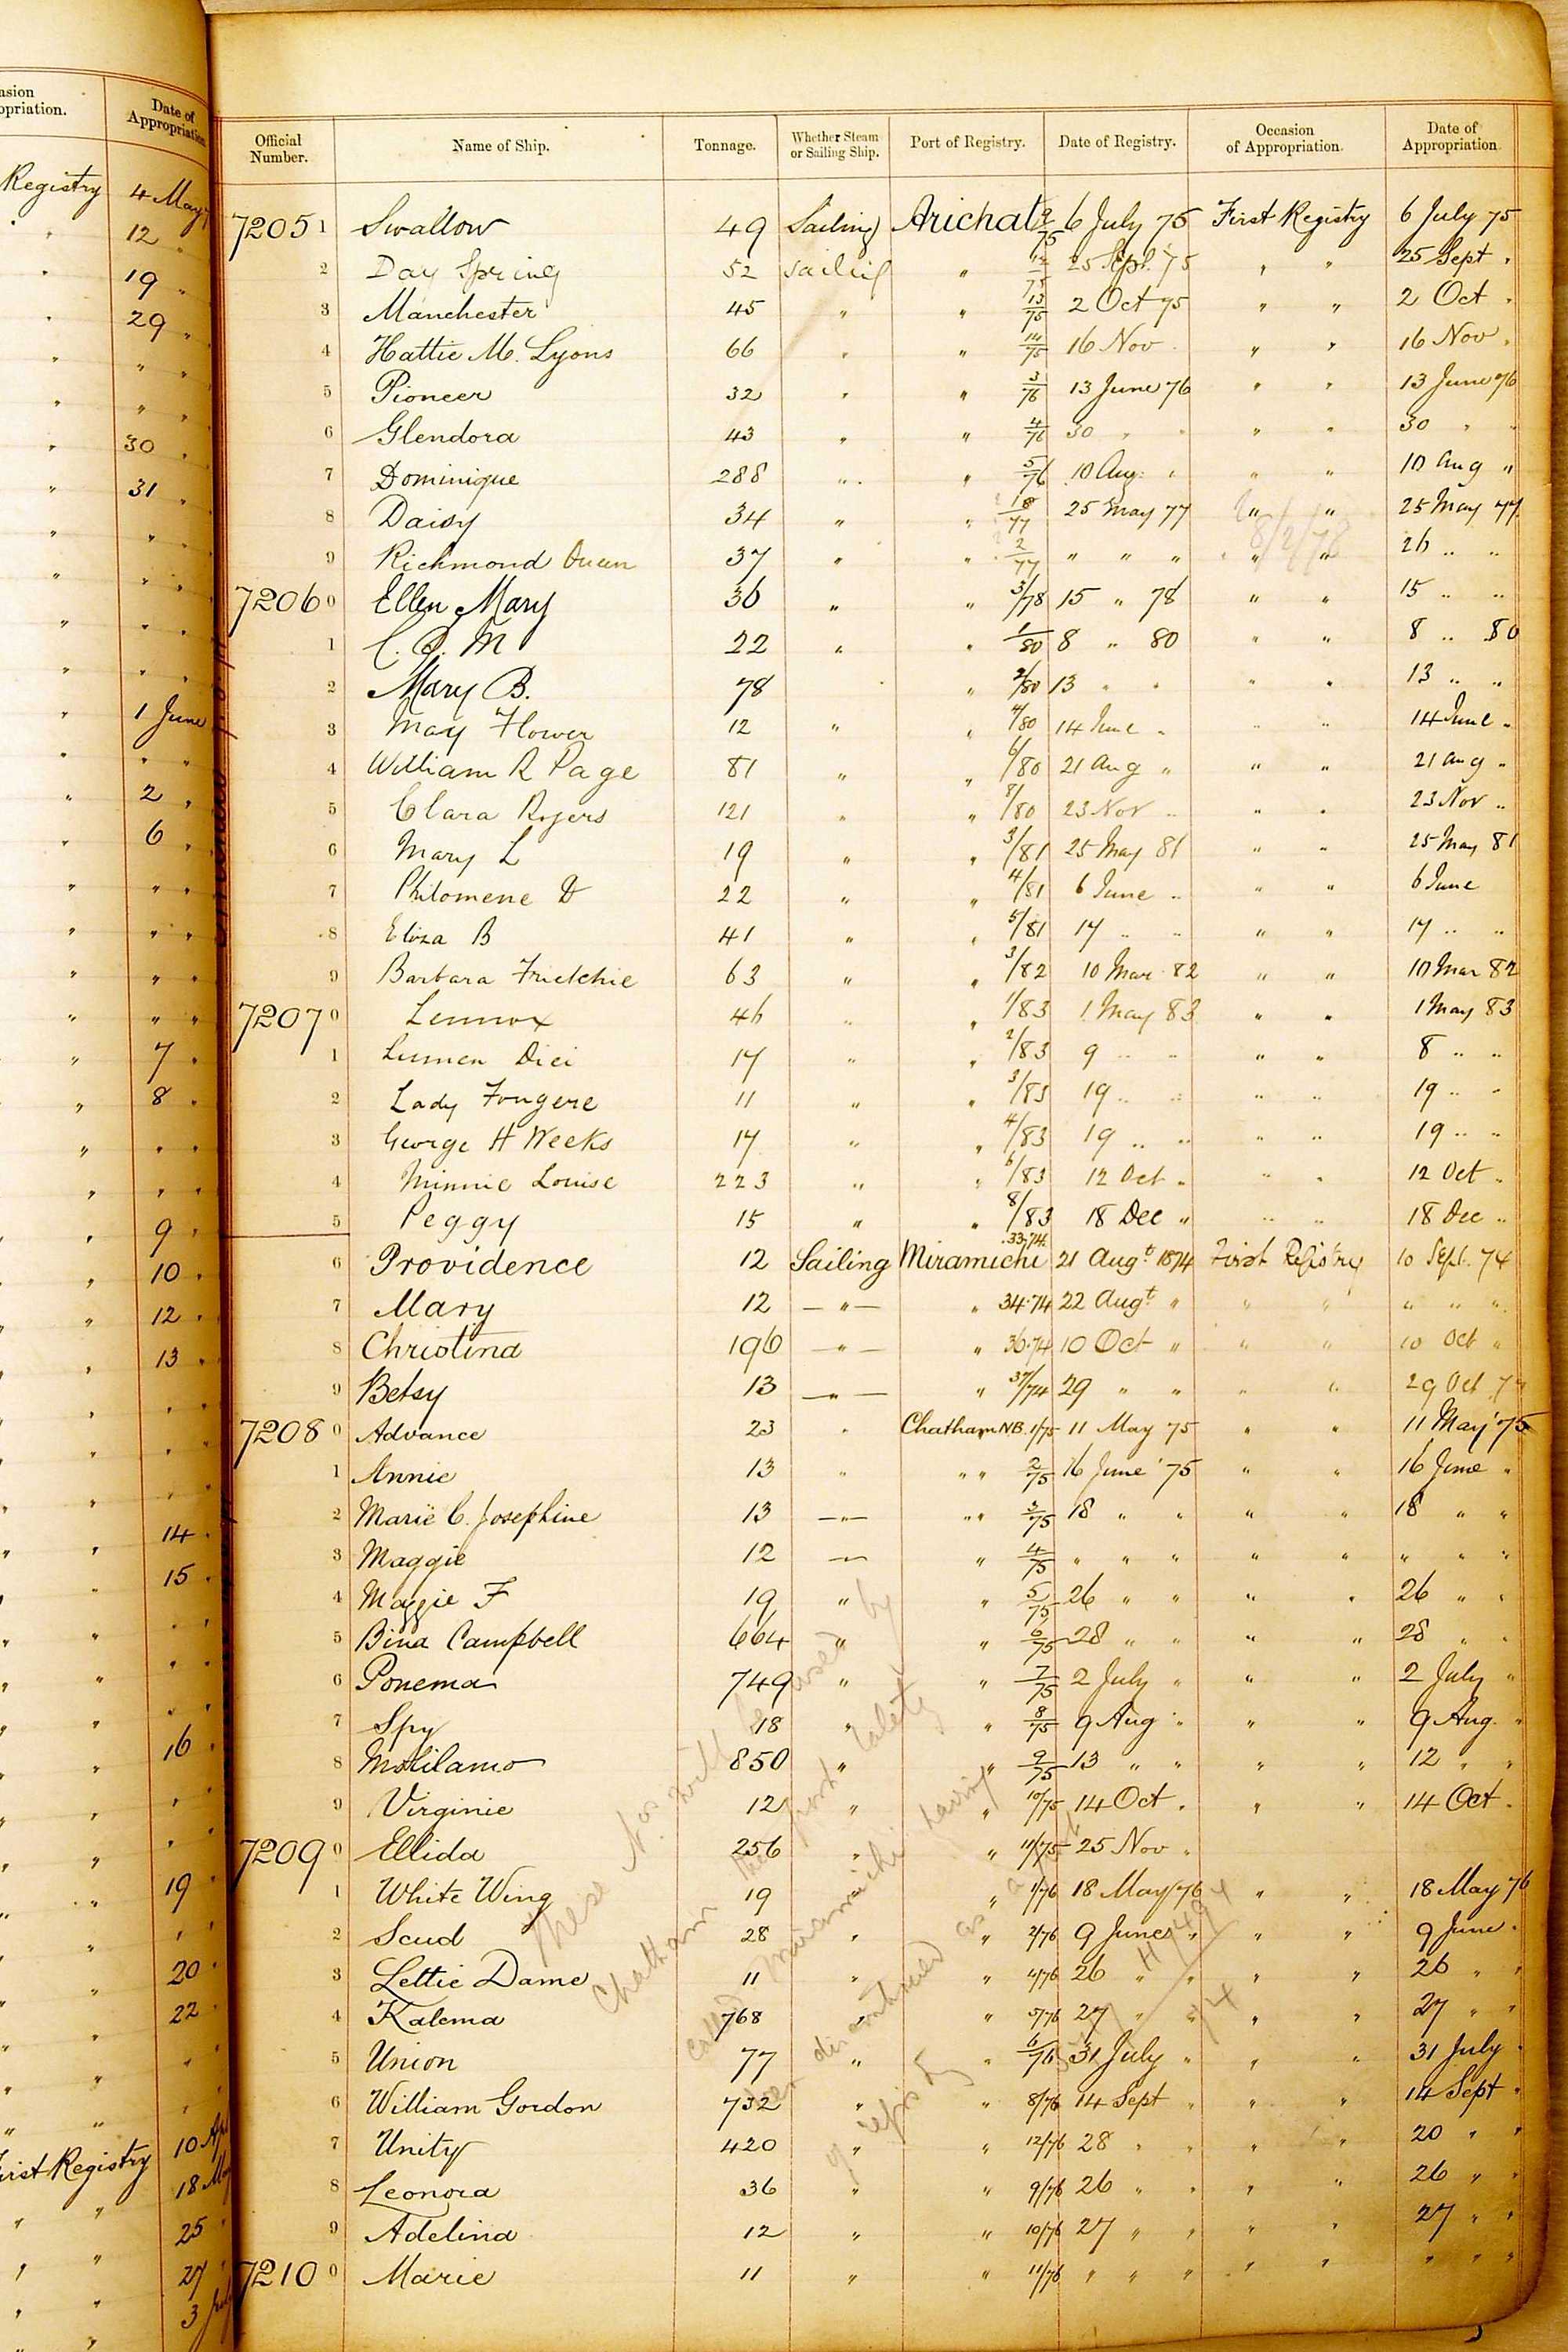 asion
opriation.
Date of
Appropriation
Registry 4 May
12 "
19 "
29 "
" "
" "
30 "
31 "
" "
" "
" "
" "
" "
1 June
" "
2 "
6 "
" "
" "
" "
" "
7 "
8 "
" "
" "
9 "
10 "
12 "
13 "
14 "
15 "
16 "
19 "
20 "
22 "
First Registry 10 Ap
18 Ma
25 "
27 "
3 July
Official Number. Name of Ship. Tonnage. Whether Steam or Sailing Ship. Port of Registry. Date of Registry. Occasion of Appropriation. Date of Appropriation.
7205 1 Swallow 49 Sailing Arichat 9/75 6 July 75 First Registry 6 July 75
2 Day Spring 52 sailing " 12/75 25 Sept. 75 " " 25 Sept "
3 Manchester 45 " " 13/75 2 Oct 75 " " 2 Oct "
4 Hattie M. Lyons 66 " " 14/75 16 Nov " " " 16 Nov "
5 Pioneer 32 " " 3/76 13 June 76 " " 13 June 76
6 Glendora 43 " " 4/76 30 " " " " 30 " "
7 Dominique 288 " " 5/76 10 Aug. " " " 10 Aug "
8 Daisy 34 " " 1/77 25 May 77 " " 25 May 77
9 Richmond Queen 37 " " 2/77 " " " " " 26 " "
8/2/78
7206 0 Ellen Mary 36 " " 3/78 15 " 78 " " 15 " "
1 C. D. M 22 " " 1/80 8 " 80 " " 8 " 80
2 Mary B. 78 " " 2/80 13 " " " " 13 " "
3 May Flower 12 " " 4/80 14 June " " " 14 June "
4 William R Page 81 " " 6/80 21 Aug " " " 21 Aug "
5 Clara Rogers 121 " " 8/80 23 Nov " " " 23 Nov "
6 Mary L 19 " " 3/81 25 May 81 " " 25 May 81
7 Philomene D 22 " " 4/81 6 June " " " 6 June
8 Eliza B 41 " " 5/81 17 " " " " 17 " "
9 Barbara Frietchie 63 " " 3/82 10 Mar 82 " " 10 Mar 82
7207 0 Lennox 46 " " 1/83 1 May 83 " " 1 May 83
1 Lumen Diei 17 " " 2/83 9 " " " " 8 " "
2 Lady Fougere 11 " " 3/83 19 " " " " 19 " "
3 George H Weeks 17 " " 4/83 19 " " " " 19 " "
4 Minnie Louise 223 " " 6/83 12 Oct " " " 12 Oct "
5 Peggy 15 " " 8/83 18 Dec " " " 18 Dec "
6 Providence 12 Sailing Miramichi 33.74. 21 Augt 1874 First Registry 10 Sept. 74
7 Mary 12 — " — " 34.74 22 Augt. " " " " " "
8 Christina 196 — " — " 36.74 10 Oct " " " 10 Oct "
9 Betsy 13 — " — " 37/74 29 " " " " 29 Oct 74
7208 0 Advance 23 " Chatham NB. 1/75 11 May 75 " " 11 May '75
1 Annie 13 " " " 2/75 16 June '75 " " 16 June "
2 Marie C. Josephine 13 — " — " " 3/75 18 " " " " 18 " "
3 Maggie 12 — " — " 4/75 " " " " " " " "
4 Maggie F 19 " " 5/75 26 " " " " 26 " "
5 Bina Campbell 664 " " 6/75 28 " " " " 28 " "
6 Ponema 749 " " 7/75 2 July " " " 2 July "
7 Spy 18 " " 8/75 9 Aug " " " 9 Aug. "
8 850 " " 9/75 13 " " " " 12 " "
9 Virginie 12 " " 10/75 14 Oct. " " 14 Oct.
7209 0 Ellida 256 " " 11/75 25 Nov "
1 White Wing 19 " 1/76 18 May/76 " " 18 May 76
2 Scud 28 " " 2/76 9 June " " " 9 June "
3 Lettie Dame 11 " " 4/76 26 " " " " 26 " "
4 Kalema 768 " " 5/76 27 " " " " 27 " "
5 Union 77 " " 6/76 31 July " " " 31 July "
6 William Gordon 732 " " 8/76 14 Sept " " " 14 Sept "
7 Unity 420 " " 12/76 28 " " " " 20 " "
8 Leonora 36 " " 9/76 26 " " " " 26 " "
9 Adelina 12 " " 10/76 27 " " " " 27 " "
7210 0 Marie 11 " " 11/76 " " " " " " " "
These Nos will be used by
Chatham the port lately
called Miramichi having
been discontinued as a port
of registry